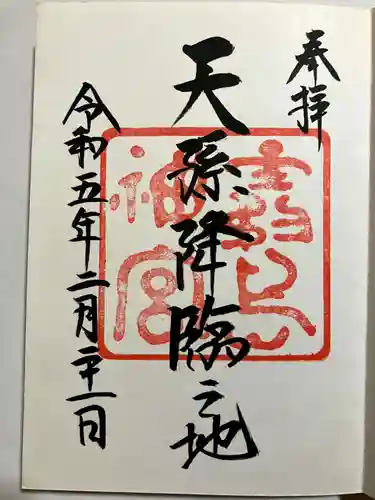 奉拝
天孫降臨之地
令和五年二月二十一日
神宮